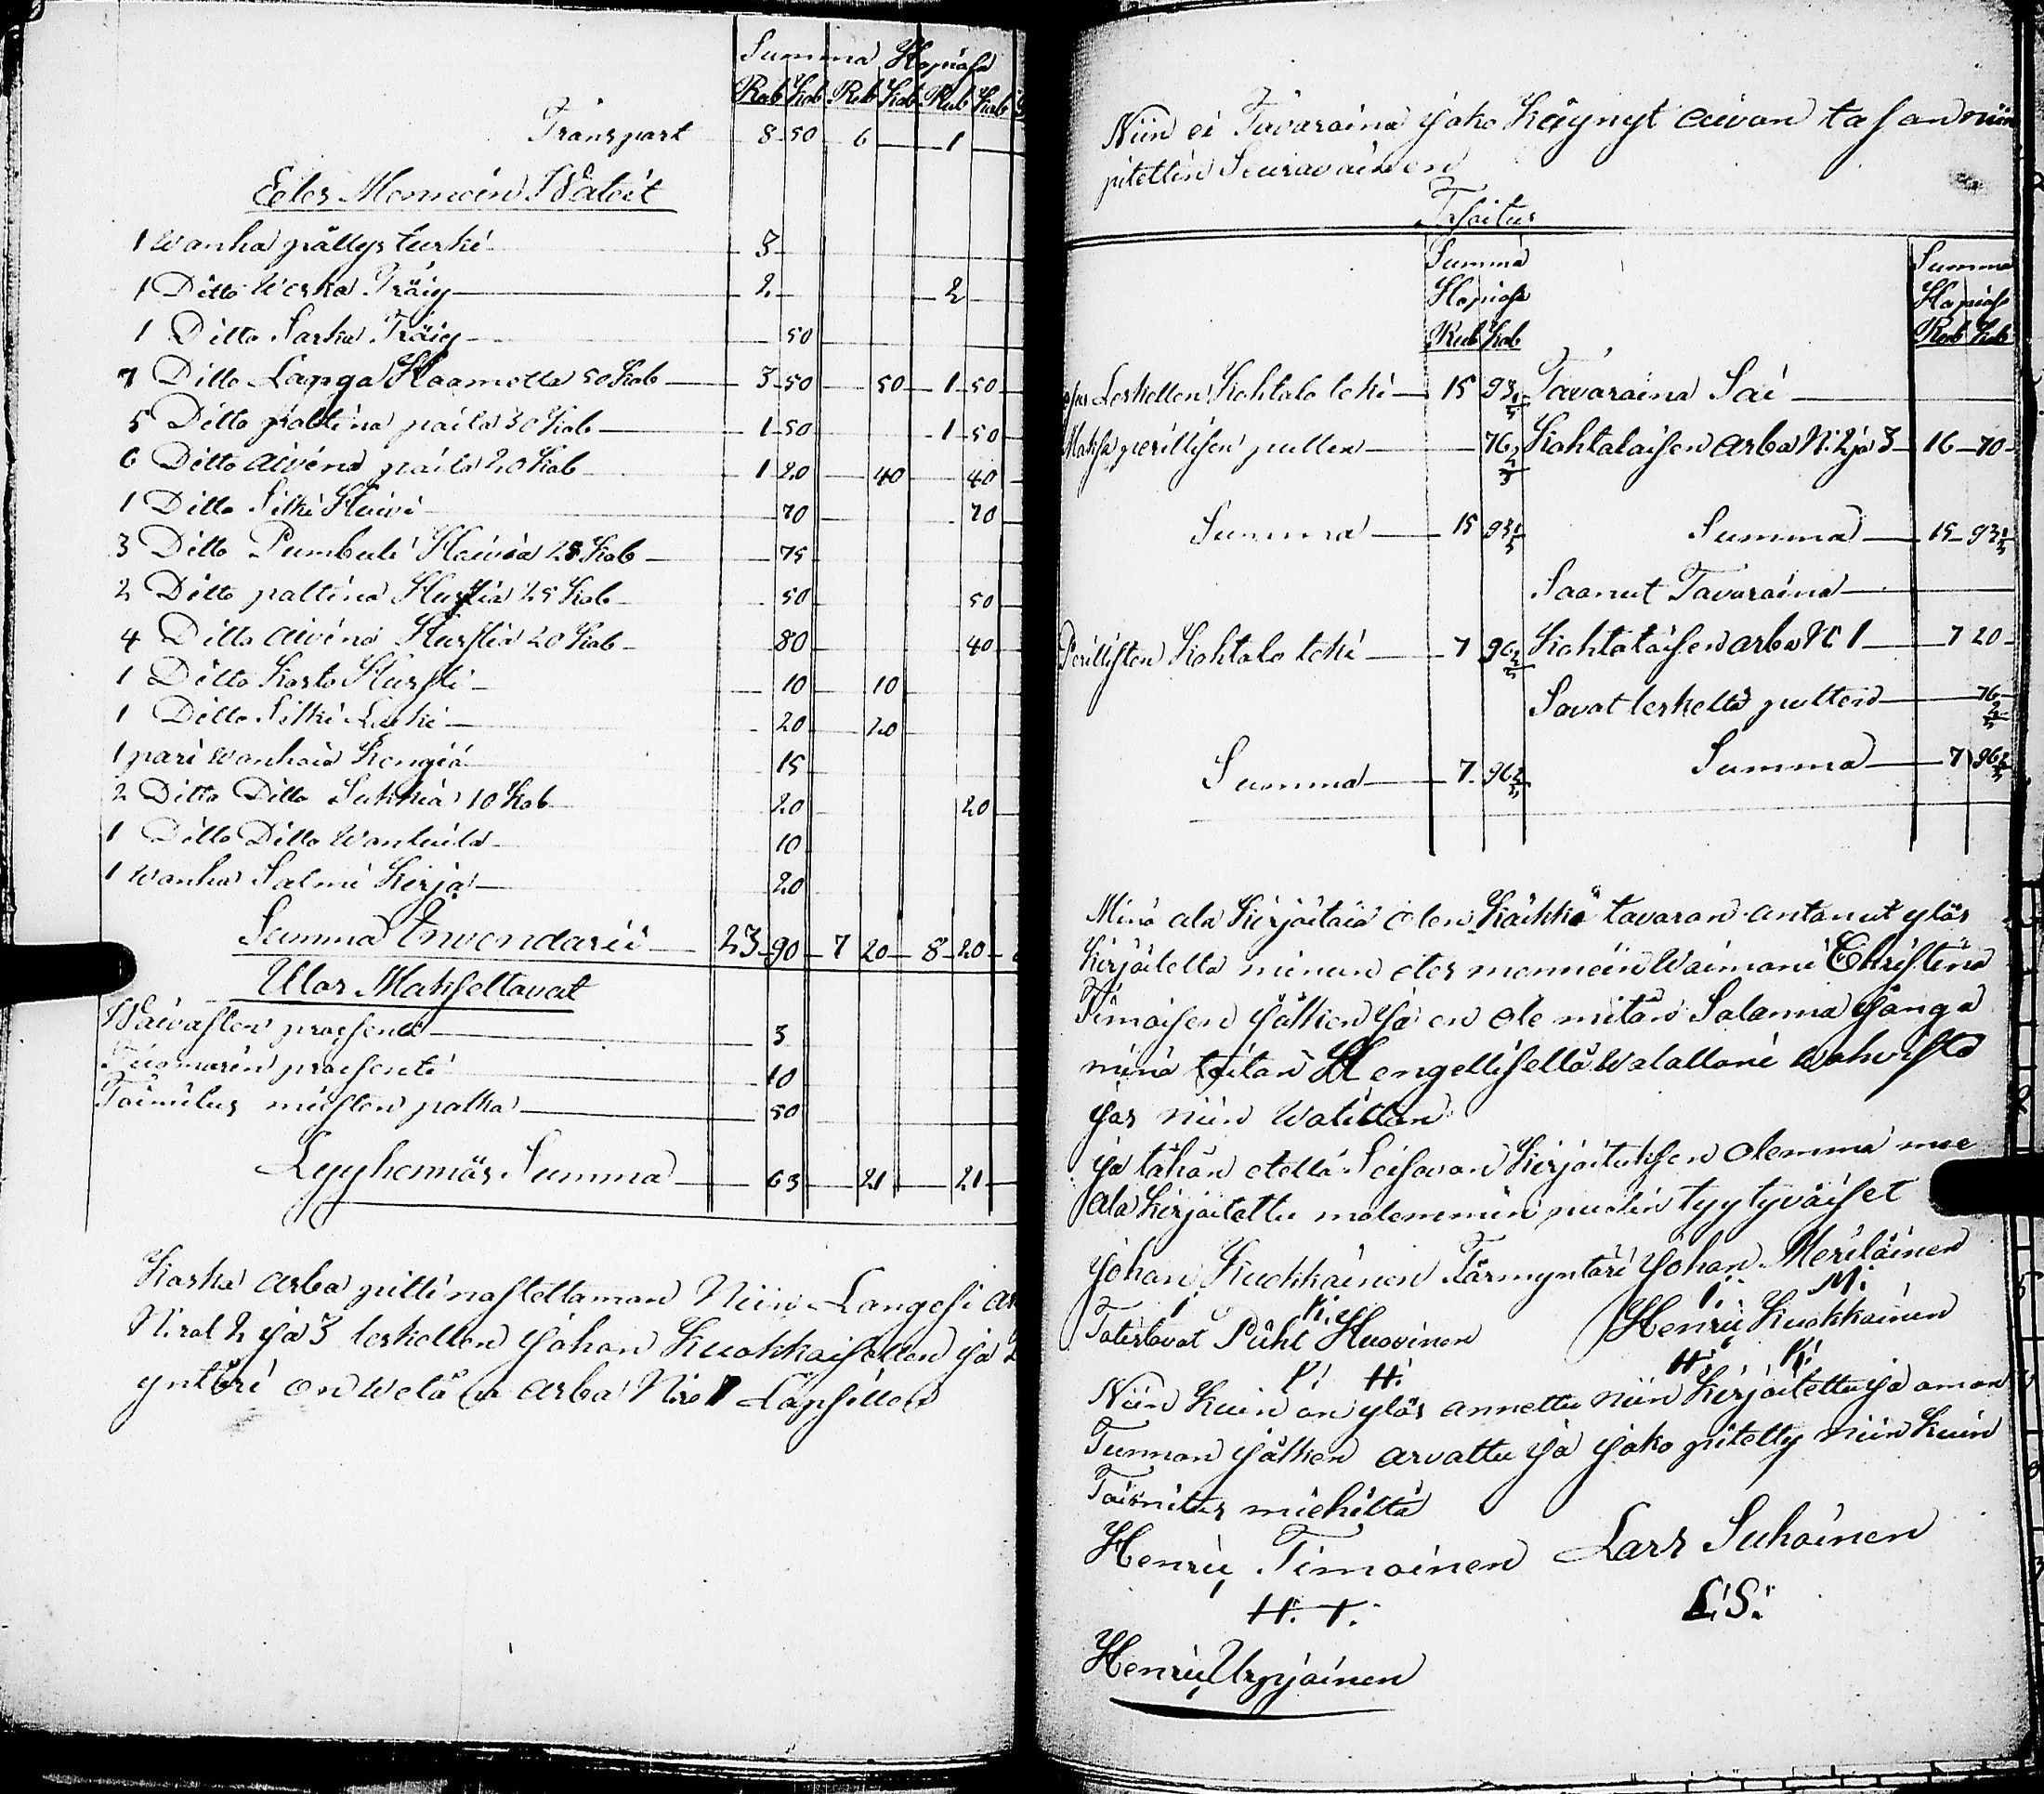 Summa Hopiasa
Rub Kob Rub Kob Rub Kob
Transpart 8 50 6 1
Edes Mennein Wateit
1 Wanha pällys turki 3
1 Ditto Werka Tröiy 2 2
1 Ditto Sarka Tröiy 50
7 Ditto Langa Haametta 50 Kob 3 50 50 1 50
5 Ditto paltina paita 30 Kob 1 50 1 50
6 Ditto aivina paita 20 Kob 1 20 40 40
1 Ditto Silki Huivi 70 70
3 Ditto Pumbuli Haivia 25 Kob 75
2 Ditto paltina Hurstia 25 Kob 50 50
4 Ditto aivina Hurstia 20 Kob 80 40
1 Ditto Karta Hursti 10 10
1 Ditto Silki Lakki 20 20
1 pari Wanhoia Kengiä 15
2 Ditto Ditto Sukkia 10 Kob 20 20
1 Ditto Ditto Wantuita 10
1 Wanha Salmi Kirja 20
Summa Enventarii 23 90 7 20 8 20
Ulos Maksettavat
Waivasten prosentti 3
Tuomarin prosenti 10
Toimitus miesten palka 50
Lyyhennös Summa 63 21 21
Koska arba pitti nostettaman Niin Langesi ar
N:rot 2 ja 3 leskellen Johan Kuokkaisellen ja
yntäri on wetänä arba Nro 1 Lapsillen
Niin ei Tavaraina jako Käynyt aivan tasan niin
pitettin Seuravainen
Tasaitus
Summa Summa
Hopiasa Hopiasa
Rub Kob Rub Kob
Leskellen Kohtalo teki 15 93 1/5 Tavaraina Sai
Maksa perillisen pullen 76 2/5 Kohtalaisen arba N: 2 ja 3 16 70
Summa 15 93 1/5 Summa 15 93 1/5
Saanut Tavaraina
Perillisten Kohtalo teki 7 96 2/5 Kohtalaisen arba N: 1 7 20
Savat leskeltä pulten 76 2/5
Summa 7 96 2/5 Summa 7 96 2/5
Minä ala Kirjoitaia olen Kaikki tavaran antanut ylös
Kirjoitetta minun edes mennein Waimoni Christina
Timoisen jälkien ja en ole mitän Salanna jonga
minä taitan Hengellisellä Walallani wahvista
jos niin Waditan
ja tähän etellä Seisovan Kirjoituksen olemma mee
ala Kirjoitettu molemmin puolin tyytyväiset
Johan Kuokkainen Färmyntäri Johan Meriläinen
I: K: I: M:
Totestavat Piht Huovinen Henrii Kuokkainen
P: H: H: K:
Niin Kuin on ylös annettu niin Kirjoitettu ja oman
Tunnon jälken arvattu ja jako pitetty niin Kuin
Toimitus miehiltä
Henrii Timoinen Lars Suhoinen
H. T. L: S:
Henrii Urpjainen